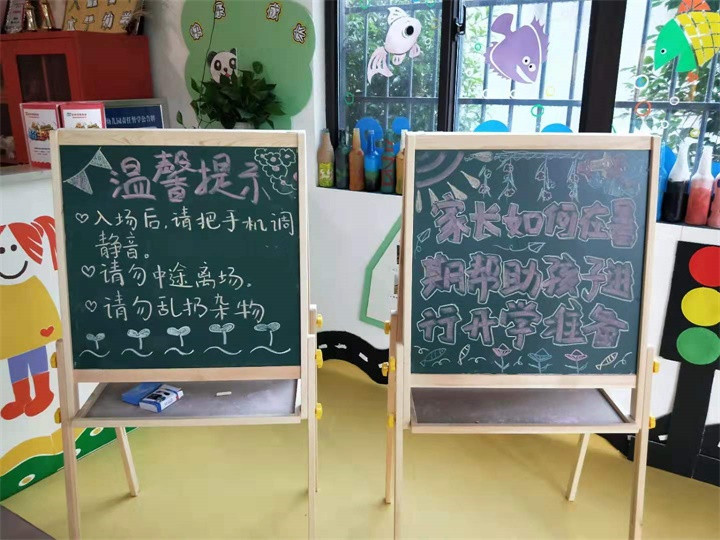 温馨提示
入场后,请把手机调
静音。
请勿中途离场.
请勿乱扔杂物
家长如何在暑
期帮助孩子进
行开学准备